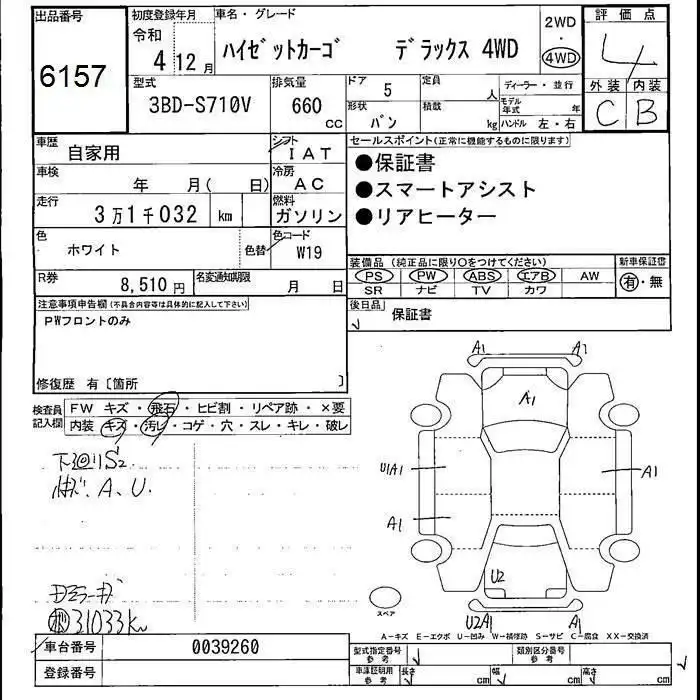 出品番号
6157
初度登録年月
令和
4 12月
車名・グレード
ハイゼットカーゴ デラックス 4WD
2WD
・
4WD
評価点
4
外装 内装
C B
型式
3BD-S710V
排気量
660
CC
ドア
5
定員
人
形状
バン
積載
kg
ディーラー・並行
モデル年式 年
ハンドル 左・右
車歴
自家用
シフト
IAT
車検
年 月( 日)
冷房
AC
走行
3万1千032 km
燃料
ガソリン
色
ホワイト
色替
色コード
W19
R券
8,510円
名変通知期限
月 日
セールスポイント(正常に機能するものに限ります)
●保証書
●スマートアシスト
●リアヒーター
装備品(純正品に限り○をつけてください)
新車保証書
PS PW ABS エアB AW
SR ナビ TV カワ
有・無
後日品
保証書
注意事項申告欄(不具合内容等は具体的に記入して下さい)
PWフロントのみ
修復歴 有〔箇所 〕
検査員記入欄
FW キズ・飛石・ヒビ割・リペア跡・×要
内装 キズ・汚レ・コゲ・穴・スレ・キレ・破レ
下廻りS2
A、U.
31033km
A1 A1
A1
U1A1
A1
A1
U2
U2A1 A1
スペア
A-キズ E-エクボ U-凹み W-補修跡 S-サビ C-腐食 XX-交換済
車台番号
0039260
登録番号
型式指定番号
参考
類別区分番号
参考
車庫証明用
参考
長さ cm
幅 cm
高さ cm